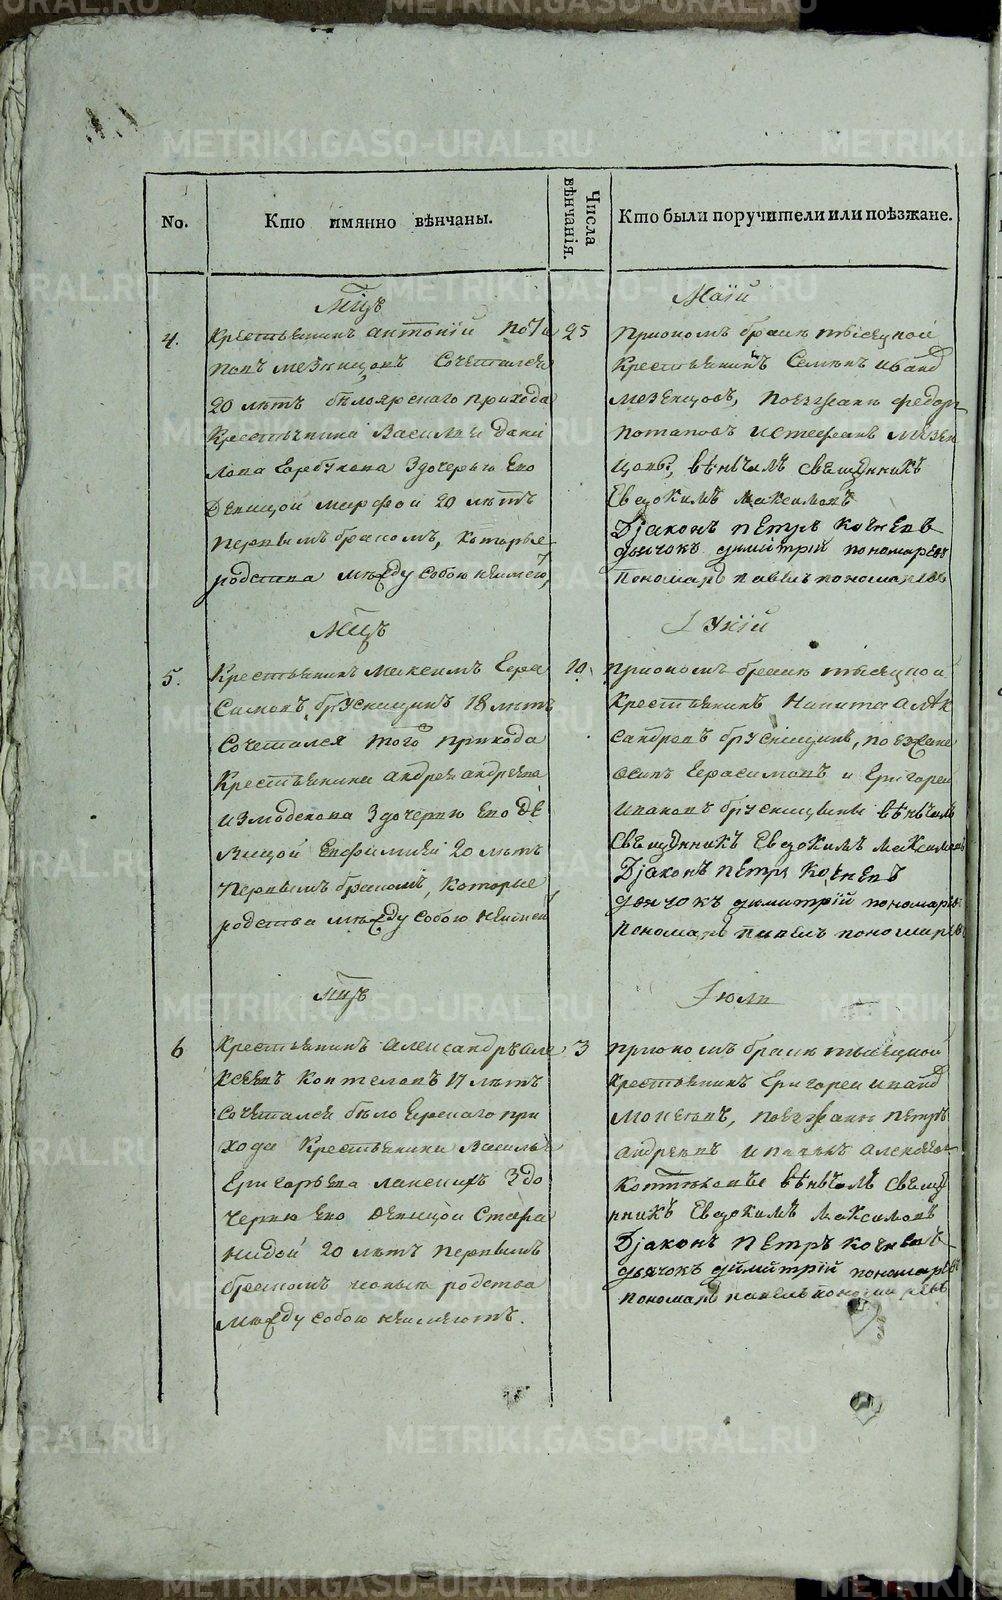 No.
Кто имянно вѣнчаны.
Числа вѣнчанія.
Кто были поручители или поѣзжане.
Мцъ
Маій
4.
Крестьянинъ Антоній Пота
повъ Мезенцовъ сочетался
20 лѣтъ бѣлоярскаго прихода
Крестьянина Василья Дани
лова Горбунова здочерью Ево
Девицой Марфой 20 лѣтъ
первымъ бракомъ, которые
родства между собою неимеютъ
25
приономъ бракѣ тысяцкой
Крестьянинъ Семенъ Иванов
Мезенцовъ, поезжана Федор
Потаповъ и Стефанъ Мезен
цовы, вѣнчалъ священникъ
Евдокимъ Максимовъ
Діаконъ Петръ Коч��евъ
дьячокъ димитрій пономаревъ
Пономарь павелъ пономаревъ
Мцъ
Іуній
5.
Крестьянинъ Максимъ Гера
симовъ Брусницынъ 18 лѣтъ
сочетался того прихода
Крестьянина Андрея Андреева
Измоденова здочерью Ево де
вицой Евфимией 20 лѣтъ
первымъ бракомъ, которые
родства между собою неимеют
10.
приономъ бракѣ тысяцкой
Крестьянинъ Никита Алек
сандровъ Брусницынъ, поезжане
Осипъ Герасимовъ и Григорей
Ивановъ Брусницыны вѣнчалъ
Священникъ Евдокимъ Максимовъ
Діаконъ Петръ
дьячокъ димитрій пономаревъ
Пономарь павелъ пономаревъ
Мцъ
Іюли
6
Крестьянинъ Александръ Але
ксеевъ Коптеловъ 17 лѣтъ
сочетался бѣлоярскаго при
хода Крестьянина Василья
Григорьева здо
черью Ево девицой Степа
нидой 20 лѣтъ первымъ
бракомъ родства
между собою неимеютъ.
3
приономъ бракѣ тысяцкой
Крестьянинъ Григорей Иванов
поезжана Петръ
Андреевъ и Алексеев
Коптеловы вѣнчалъ священ
никъ Евдокимъ Максимовъ
Діаконъ Петръ
дьячокъ димитрій пономаревъ
пономарь павелъ пономаревъ
METRIKI.GASO-URAL.RU